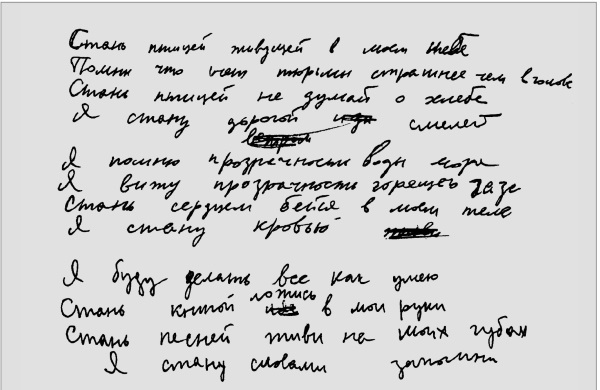 Стань птицей живущей в моем небе
Помни что нет тюрьмы страшнее чем в голове
Стань птицей не думай о хлебе
Я стану дорогой смелей
Я помню прозрачность воды моря
Я вижу прозрачность горящего газа
Стань сердцем бейся в моем теле
Я стану кровью
Я буду делать все как умею
Стань книгой ложись в мои руки
Стань песней живи на моих губах
Я стану словами запомни